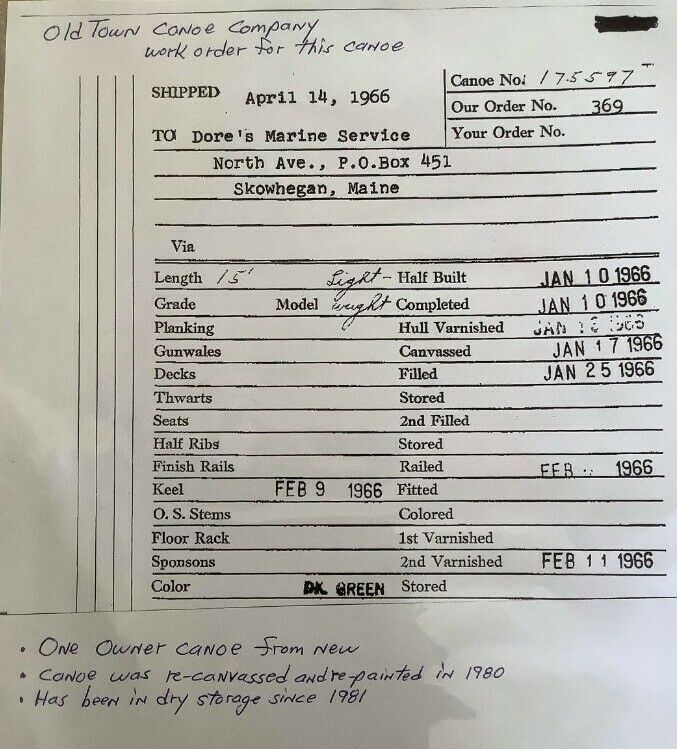 Old Town Canoe Company
work order for this canoe
Canoe No: 175597
SHIPPED April 14, 1966
Our Order No. 369
TO Dore's Marine Service Your Order No.
North Ave., P.O.Box 451
Skowhegan, Maine
Via
Length 15' Light- Half Built JAN 10 1966
Grade Model weight Completed JAN 10 1966
Planking Hull Varnished JAN 1966
Gunwales Canvassed JAN 17 1966
Decks Filled JAN 25 1966
Thwarts Stored
Seats 2nd Filled
Half Ribs Stored
Finish Rails Railed FEB 1966
Keel FEB 9 1966 Fitted
O. S. Stems Colored
Floor Rack 1st Varnished
Sponsons 2nd Varnished FEB 11 1966
Color DK GREEN Stored
• One owner canoe from new
• Canoe was re-canvassed and re-painted in 1980
• Has been in dry storage since 1981